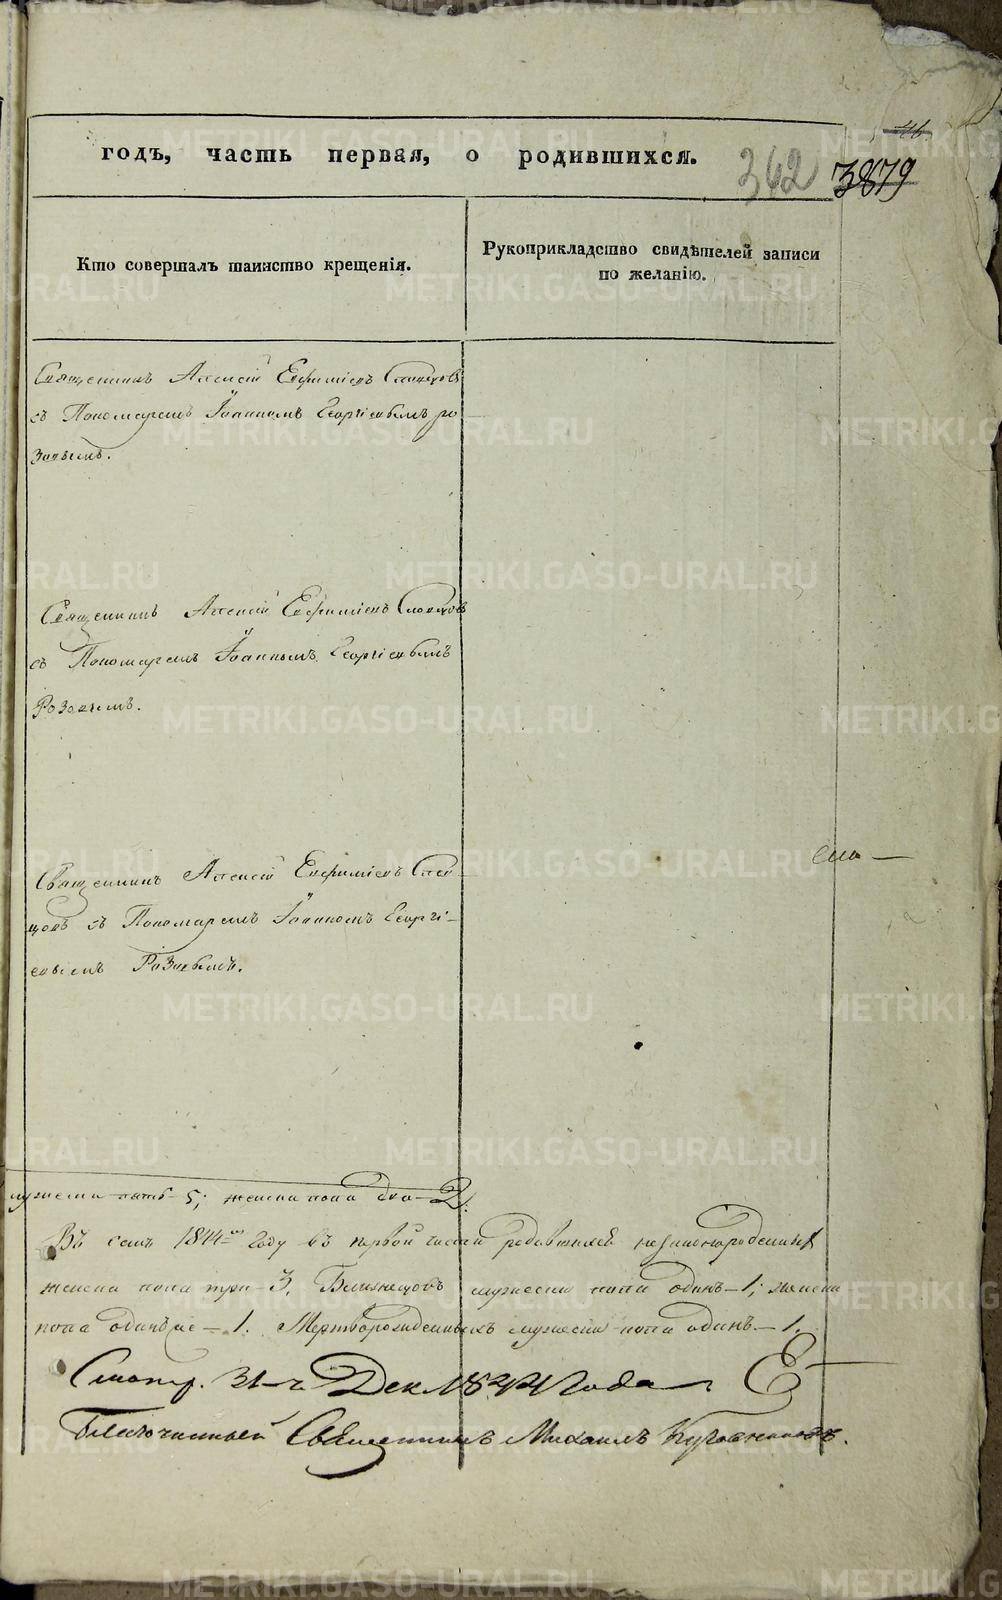 46
годъ, часть первая, о родившихся.
362 3879
Кто совершалъ таинство крещенія.
Рукоприкладство свидѣтелей записи
по желанію.
Священникъ Алексій Евфиміевъ
съ Пономаремъ Іоанномъ Георгіевымъ Ро
зовымъ.
Священникъ Алексій Евфиміевъ
съ Пономаремъ Іоанномъ Георгіевымъ
Розовымъ.
Священникъ Алексій Евфиміевъ
цовъ съ Пономаремъ Іоанномъ Георгі-
евымъ Розовымъ.
мужеска пять – 5; женска пола два – 2.
Въ семъ 1844мъ году въ первой части родившихся незаконнорожденныхъ
женска пола три – 3. Близнецовъ мужеска пола одинъ – 1; женска
пола – 1. Мертворожденныхъ мужеска пола одинъ – 1.
Смотр. 31-го Дек. 1844 года
Благочинный Священникъ Михаилъ
METRIKI.GASO-URAL.RU